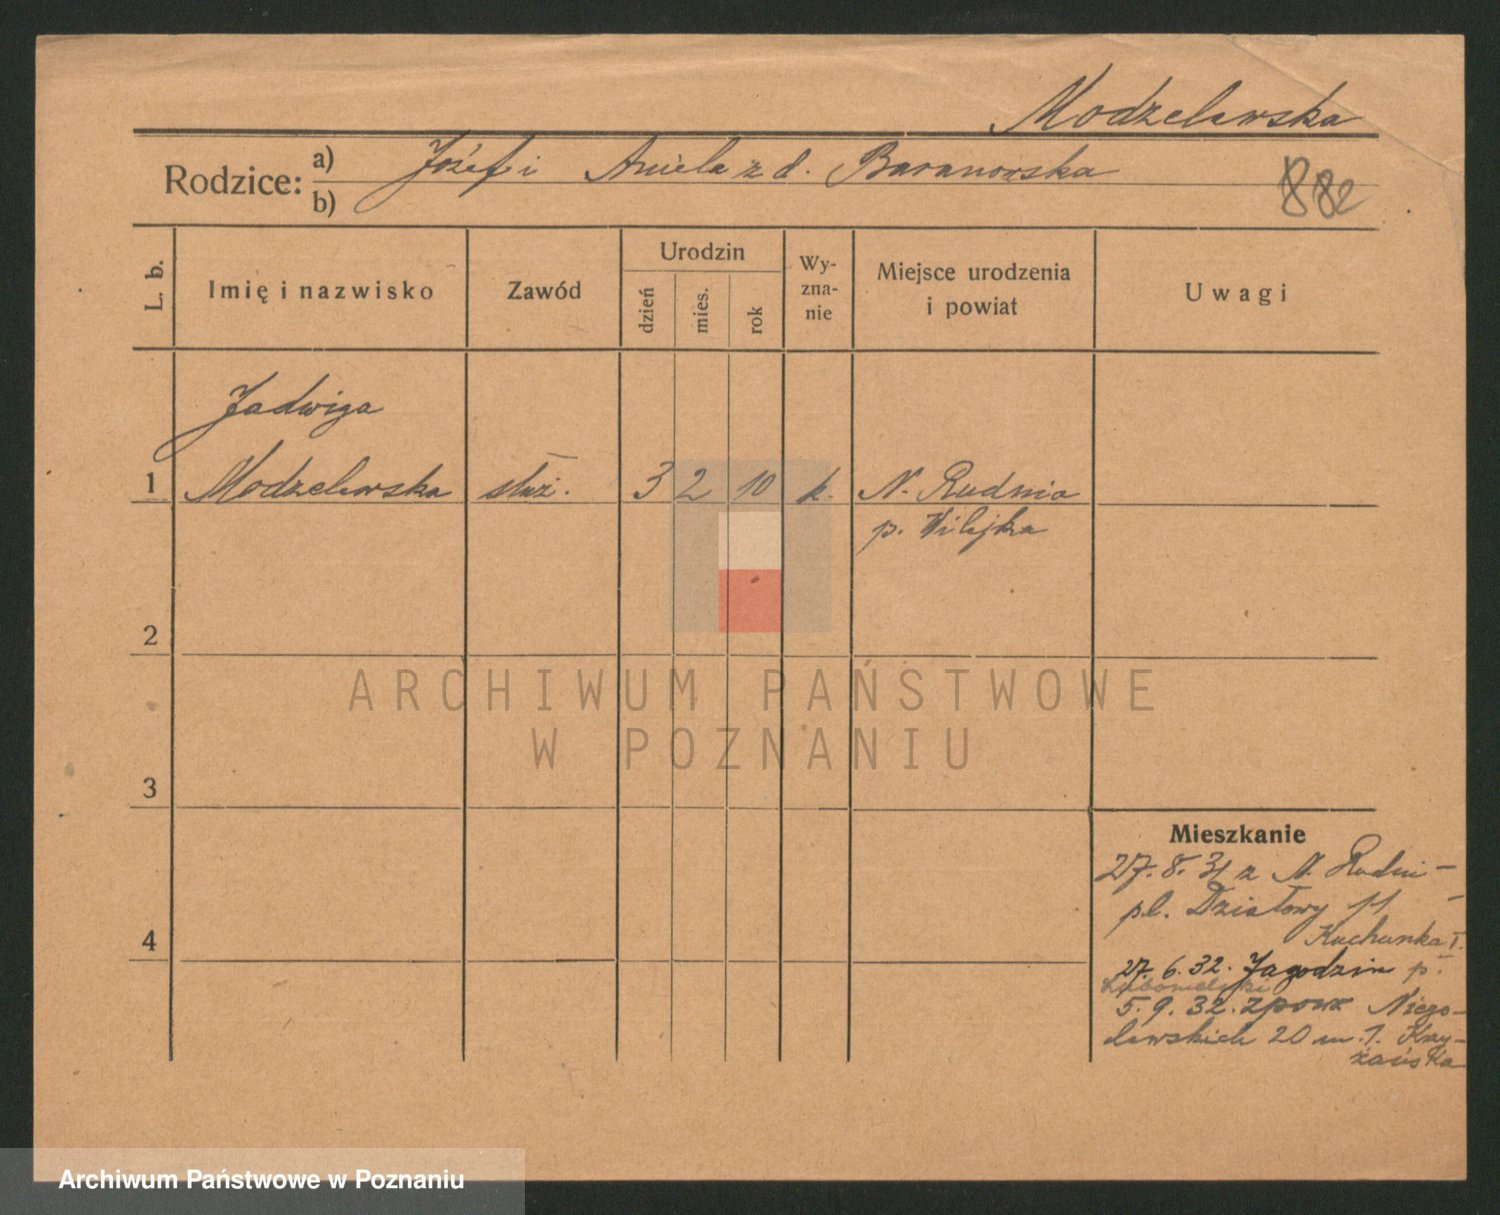 Modzelewska
Rodzice: a) Józef i Aniela z d. Baranowska
b)
882
L. b.
Imię i nazwisko
Zawód
Urodzin
dzień
mies.
rok
Wy-
zna-
nie
Miejsce urodzenia
i powiat
Uwagi
Jadwiga
1 Modzelewska służ. 3 2 10 k. N. Rudnia
p. Wilejka
2
3
4
Mieszkanie
27. 8. 31 z N. Rudni -
pl. Działowy 11
Kuchunka I.
27. 6. 32. Jagodzin p.
5. 9. 32. zpow Niego-
lewskich 20 m. 1. Krzy-
żańska
ARCHIWUM PAŃSTWOWE
W POZNANIU
Archiwum Państwowe w Poznaniu